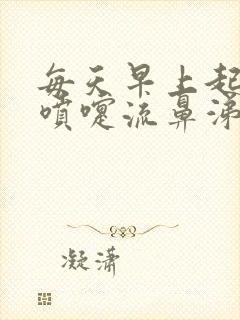 每天早上起
喷嚏流鼻涕
凝潇